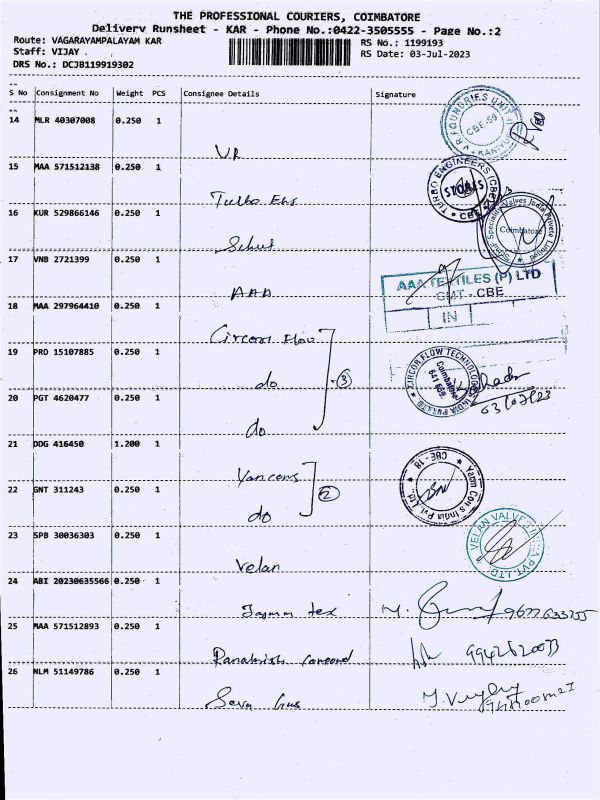 THE PROFESSIONAL COURIERS, COIMBATORE
Delivery Runsheet - KAR - Phone No.:0422-3505555 - Page No.:2
Route: VAGARAYAMPALAYAM KAR
RS No.: 1199193
Staff: VIJAY
RS Date: 03-Jul-2023
DRS No.: DCJB119919302
S No Consignment No Weight PCS Consignee Details Signature
14 MLR 40307008 0.250 1
V.R FOUNDRIES UNIT
CBE-59
VR
15 MAA 571512138 0.250 1
TURBO ENGINEERS (CBE)
STORES
Turbo Eng
16 KUR 529866146 0.250 1
Coimbatore
Schuf
17 VNB 2721399 0.250 1
AAA
AAA TEXTILES (P) LTD
CMT - CBE
18 MAA 297964410 0.250 1
IN
Circor Flow
19 PRO 15107885 0.250 1
CIRCOR FLOW TECHNOLOGIES INDIA PVT LTD
Coimbatore
do 3
20 PGT 4620477 0.250 1
03/07/23
do
21 DDG 416450 1.200 1
CBE - 18
Yaancons
22 GNT 311243 0.250 1
2
do
23 SPB 30036303 0.250 1
VELAN VALVES INDIA PVT. LTD.
Velan
24 ABI 20230635566 0.250 1
tex
25 MAA 571512893 0.250 1
26 NLM 51149786 0.250 1